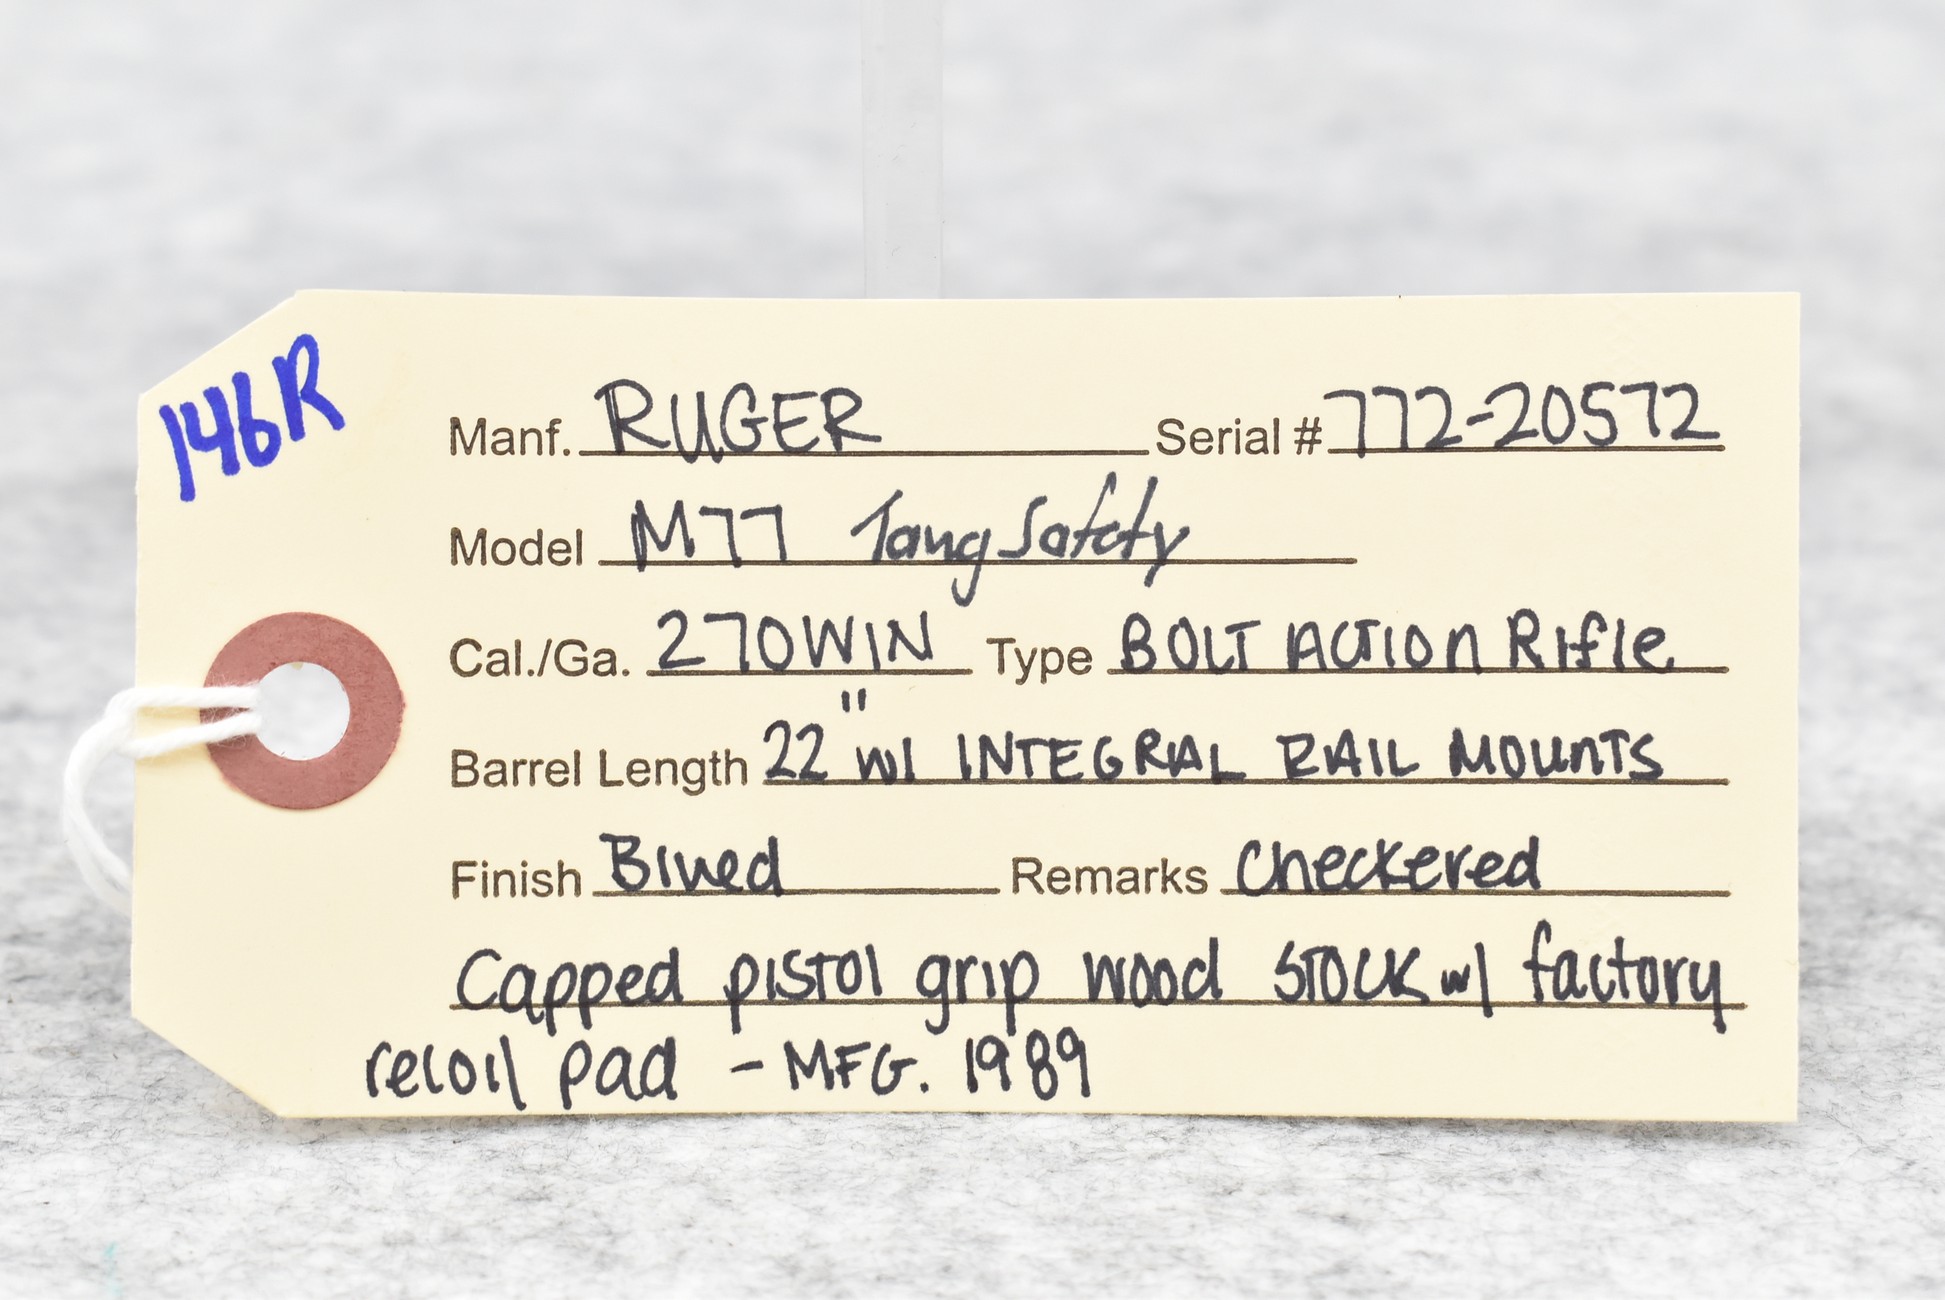 146R
Manf. RUGER Serial # 772-20572
Model M77 Tang Safety
Cal./Ga. 270WIN Type BOLT ACTION Rifle
Barrel Length 22" w/ INTEGRAL RAIL MOUNTS
Finish Blued Remarks Checkered
Capped pistol grip wood STOCK w/ factory
recoil pad - MFG. 1989